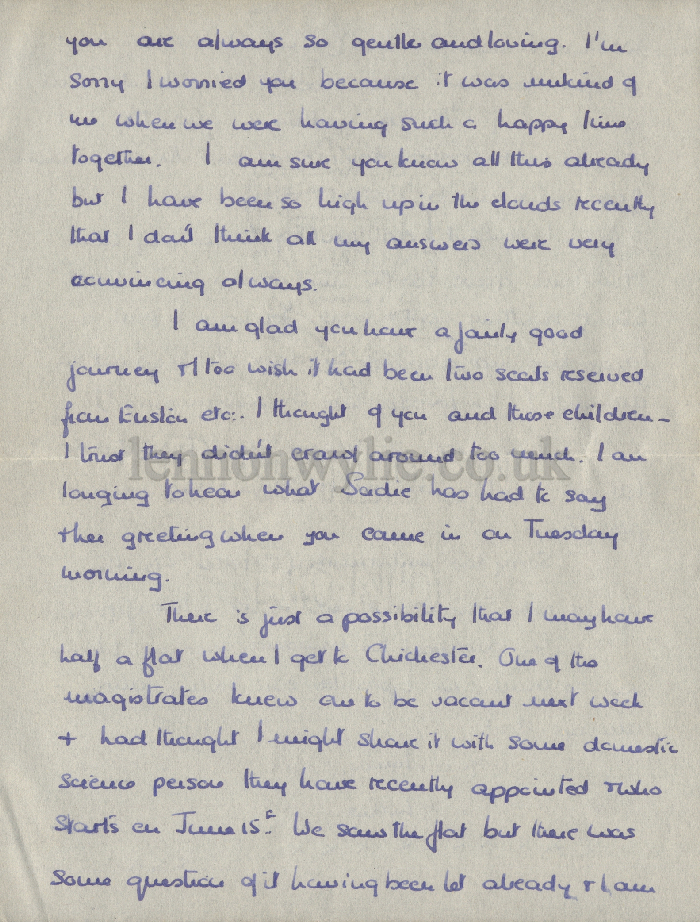 you are always so gentle and loving. I'm
sorry I worried you because it was unkind of
me when we were having such a happy time
together. I am sure you know all this already
but I have been so high up in the clouds recently
that I don't think all my answers were very
convincing always.
I am glad you have a fairly good
journey & I too wish it had been two seats reserved
from Euston etc:. I thought of you and those children -
I trust they didn't crawl around too much. I am
lennonwylie.co.uk
longing to hear what Sadie has had to say
& her greeting when you came in on Tuesday
morning.
There is just a possibility that I may have
half a flat when I get to Chichester. One of the
magistrates knew one to be vacant next week
+ had thought I might share it with some domestic
science person they have recently appointed & who
starts on June 15th. We saw the flat but there was
some question of it having been let already & I am